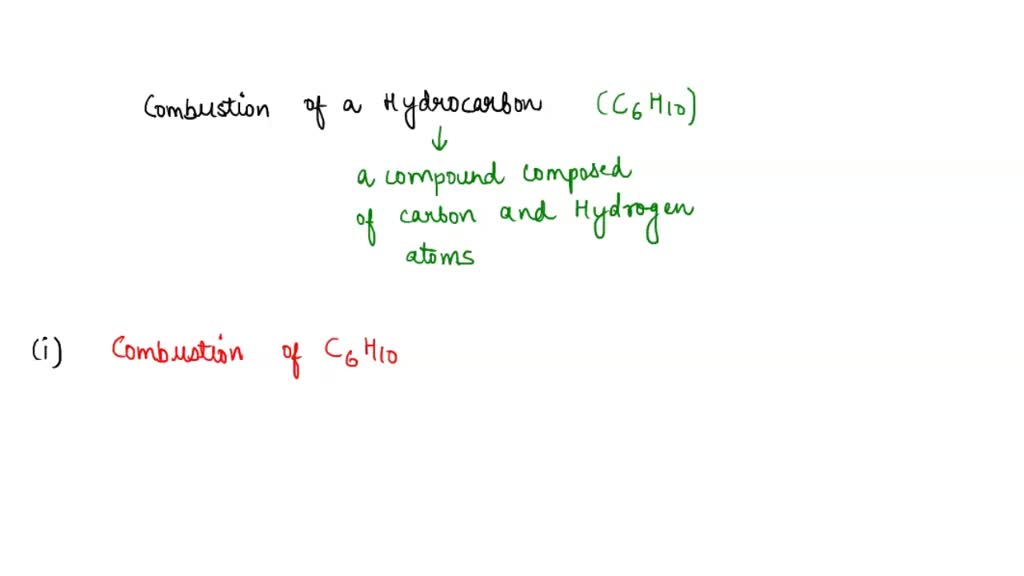 Combustion of a Hydrocarbon (C6H10)
↓
a compound composed
of carbon and Hydrogen
atoms
(i) Combustion of C6H10